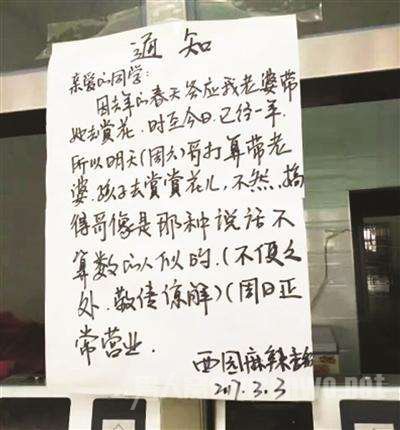 通知
亲爱的同学:
因去年的春天答应我老婆带
她去赏花，时至今日，已经一年，
所以明天(周六)哥打算带老
婆、孩子去赏赏花儿，不然，搞
得哥像是那种说话不
算数的人似的，(不便之
处，敬请谅解)(周日正
常营业.
西园麻辣香锅
2017.3.3